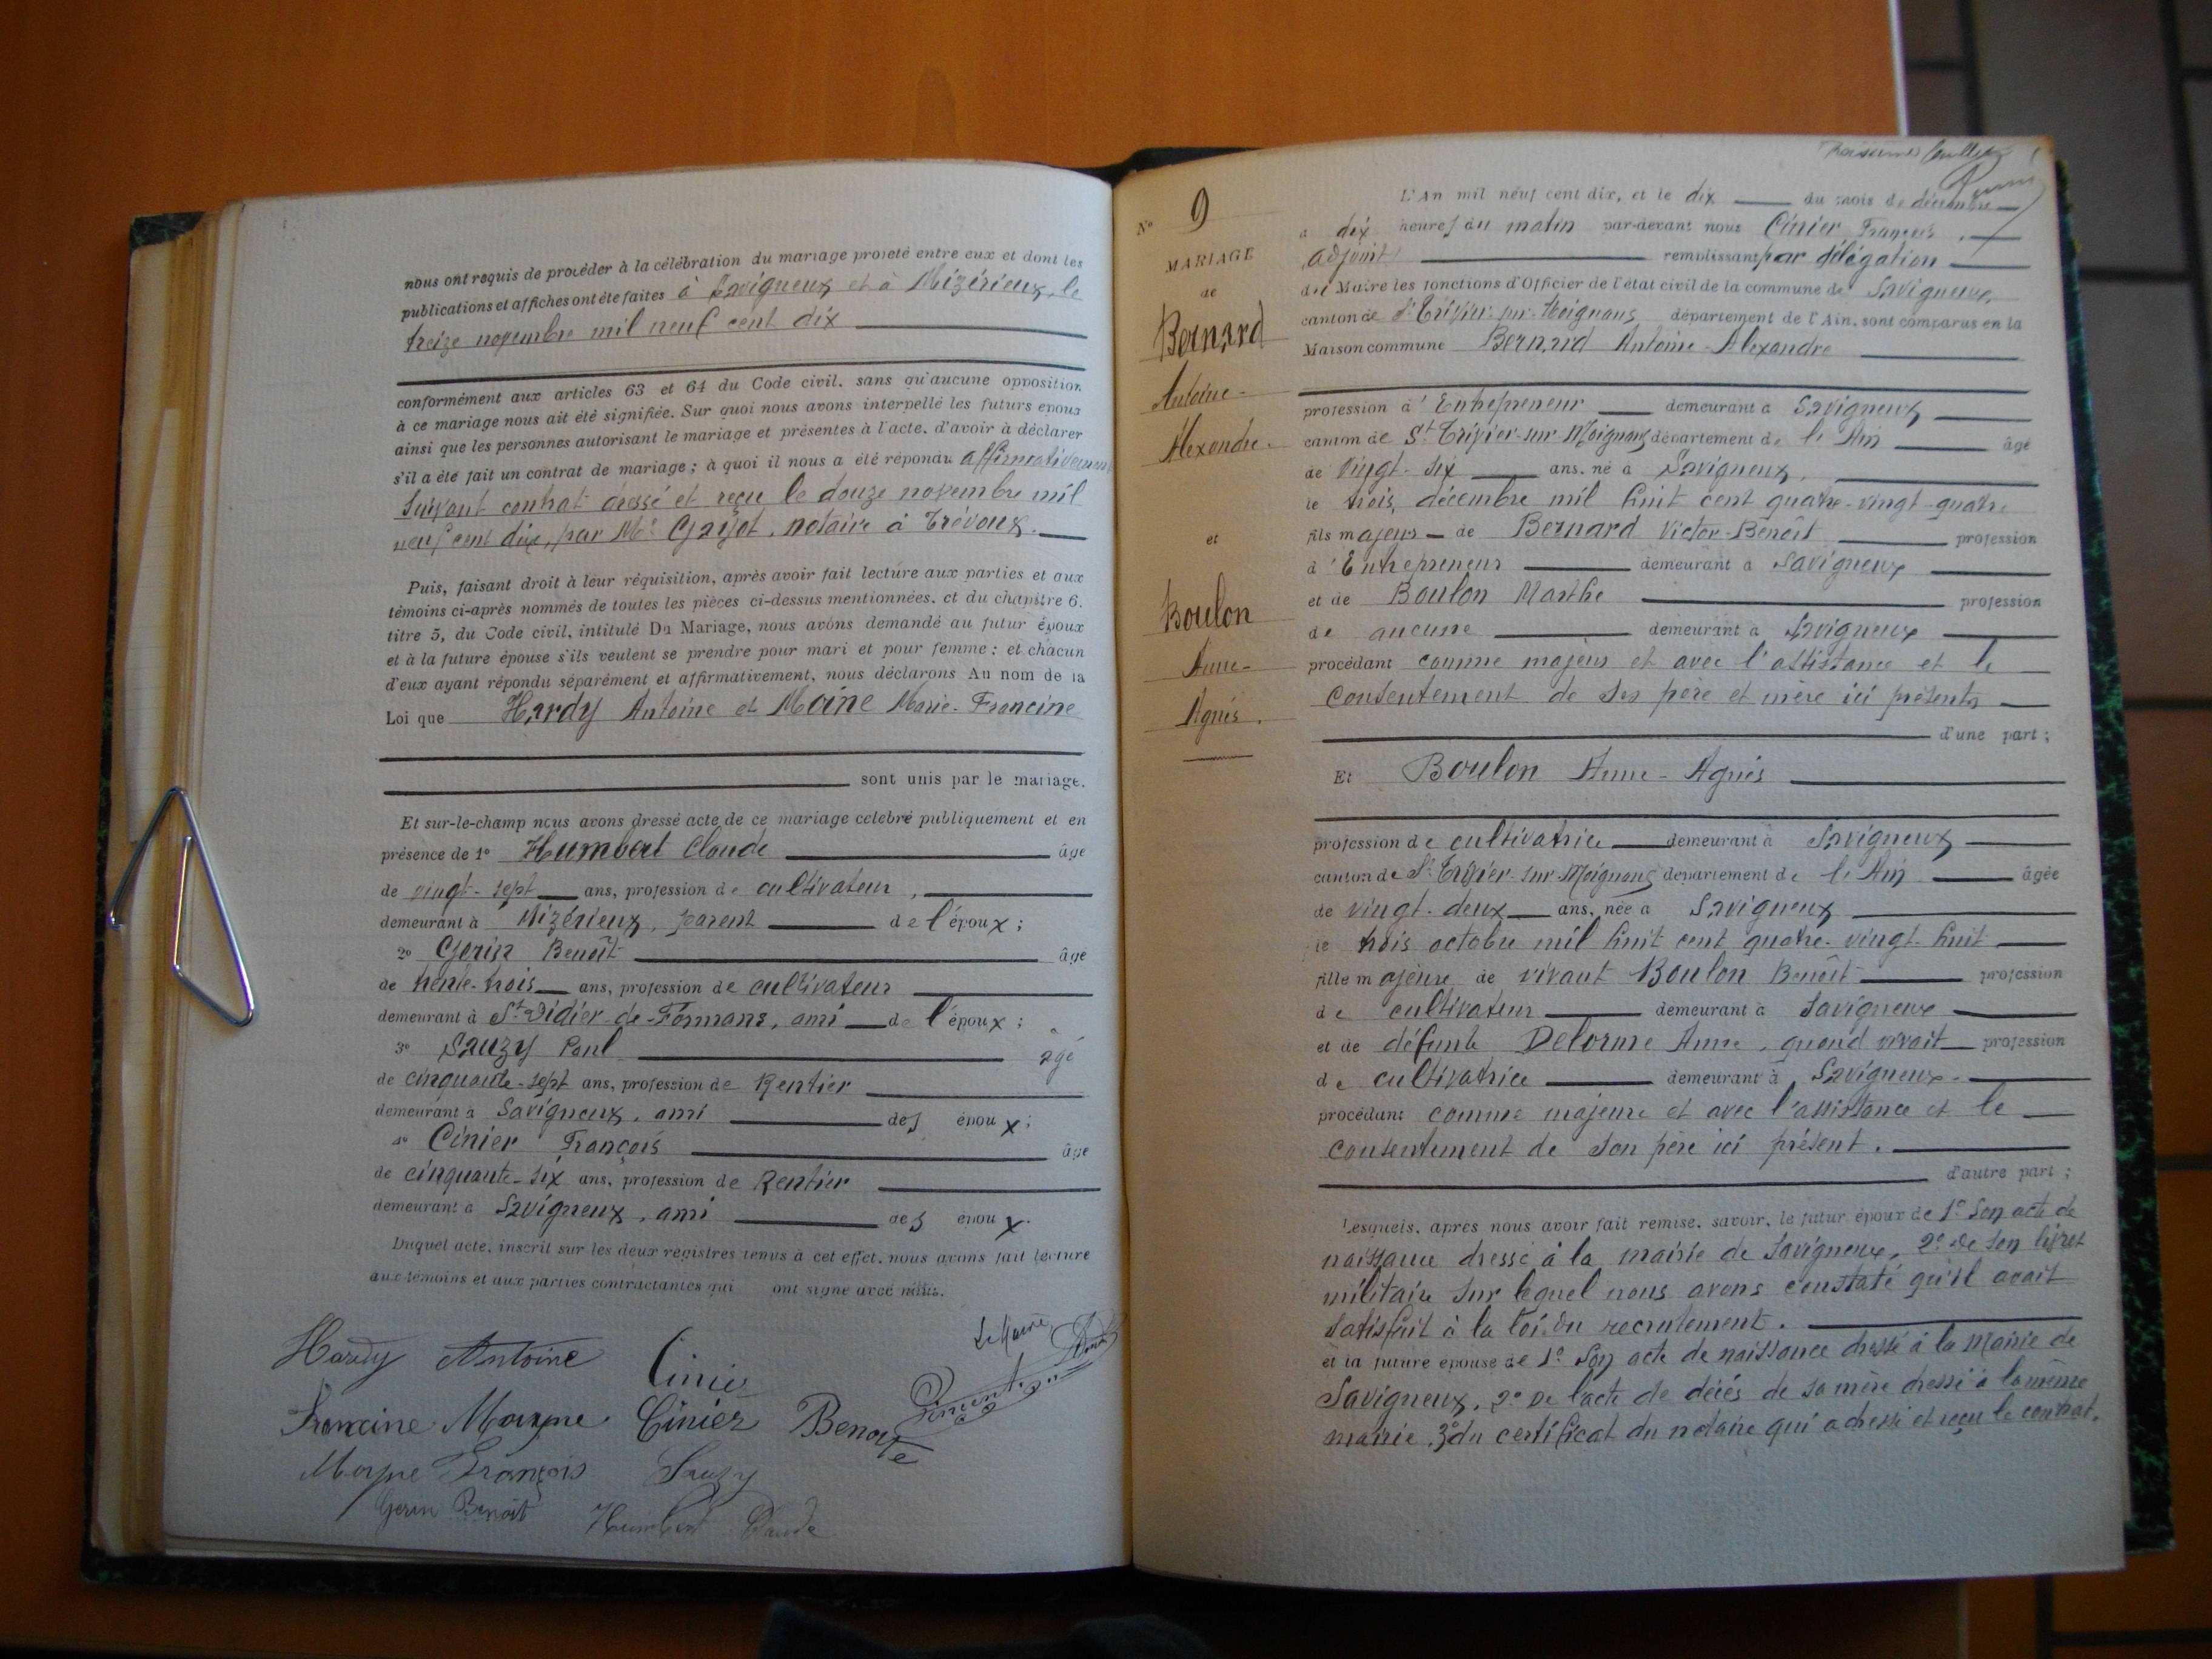 nous ont requis de procéder à la célébration du mariage projeté entre eux et dont les
publications et affiches ont été faites à Savigneux et à Mizérieux, le
treize novembre mil neuf cent dix
conformément aux articles 63 et 64 du Code civil, sans qu'aucune opposition
à ce mariage nous ait été signifiée. Sur quoi nous avons interpellé les futurs époux
ainsi que les personnes autorisant le mariage et présentes à l'acte, d'avoir à déclarer
s'il a été fait un contrat de mariage ; à quoi il nous a été répondu affirmativement
suivant contrat dressé et reçu le douze novembre mil
neuf cent dix, par Me notaire à Trévoux.
Puis, faisant droit à leur réquisition, après avoir fait lecture aux parties et aux
témoins ci-après nommés de toutes les pièces ci-dessus mentionnées, et du chapitre 6,
titre 5, du Code civil, intitulé Du Mariage, nous avons demandé au futur époux
et à la future épouse s'ils veulent se prendre pour mari et pour femme ; et chacun
d'eux ayant répondu séparément et affirmativement, nous déclarons Au nom de la
Loi que Hardy Antoine et Moine Marie-Francine
sont unis par le mariage.
Et sur-le-champ nous avons dressé acte de ce mariage célébré publiquement et en
présence de 1° Humbert Claude âgé
de vingt-sept ans, profession de cultivateur,
demeurant à Mizérieux, parent de l'époux ;
2° Gerin Benoît âgé
de trente-trois ans, profession de cultivateur
demeurant à St Didier-de-Formans, ami de l'époux ;
3° Sauzy Paul âgé
de cinquante-sept ans, profession de Rentier
demeurant à Savigneux, ami des époux ;
4° Cinier François âgé
de cinquante-six ans, profession de Rentier
demeurant à Savigneux, ami des époux.
Duquel acte, inscrit sur les deux registres tenus à cet effet, nous avons fait lecture
aux témoins et aux parties contractantes qui ont signé avec nous.
Le Maire,
Hardy Antoine Cinier
Francine Moyne Cinier Benoite
Moyne François Sauzy
Gerin Benoît Humbert Claude
N° 9
MARIAGE
de
Bernard
Antoine-
Alexandre.
et
Boulon
Anne-
Agnès.
L'An mil neuf cent dix, et le dix du mois de décembre
à dix heures du matin par-devant nous Cinier François,
adjoint remplissant par délégation
du Maire les fonctions d'Officier de l'état civil de la commune de Savigneux,
canton de St Trivier-sur-Moignans département de l'Ain, sont comparus en la
Maison commune Bernard Antoine-Alexandre
profession d'Entrepreneur demeurant à Savigneux
canton de St Trivier-sur-Moignans département de l'Ain âgé
de vingt-six ans, né à Savigneux,
le trois décembre mil huit cent quatre-vingt-quatre
fils majeur de Bernard Victor-Benoît profession
d'Entrepreneur demeurant à Savigneux
et de Boulon Marthe profession
de aucune demeurant à Savigneux
procédant comme majeur et avec l'assistance et le
consentement de ses père et mère ici présents
d'une part ;
Et Boulon Anne-Agnès
profession de cultivatrice demeurant à Savigneux
canton de St Trivier-sur-Moignans département de l'Ain âgée
de vingt-deux ans, née à Savigneux
le trois octobre mil huit cent quatre-vingt-huit
fille majeure de vivant Boulon Benoît profession
de cultivateur demeurant à Savigneux
et de défunte Delorme Anne, quand vivait profession
de cultivatrice demeurant à Savigneux.
procédant comme majeure et avec l'assistance et le
consentement de son père ici présent.
d'autre part ;
Lesquels, après nous avoir fait remise, savoir, le futur époux de 1° Son acte de
naissance dressé à la mairie de Savigneux, 2° de son livret
militaire sur lequel nous avons constaté qu'il avait
satisfait à la loi du recrutement.
et la future épouse de 1° Son acte de naissance dressé à la Mairie de
Savigneux, 2° De l'acte de décès de sa mère dressé à la même
mairie, 3° du certificat du notaire qui a dressé et reçu le contrat.